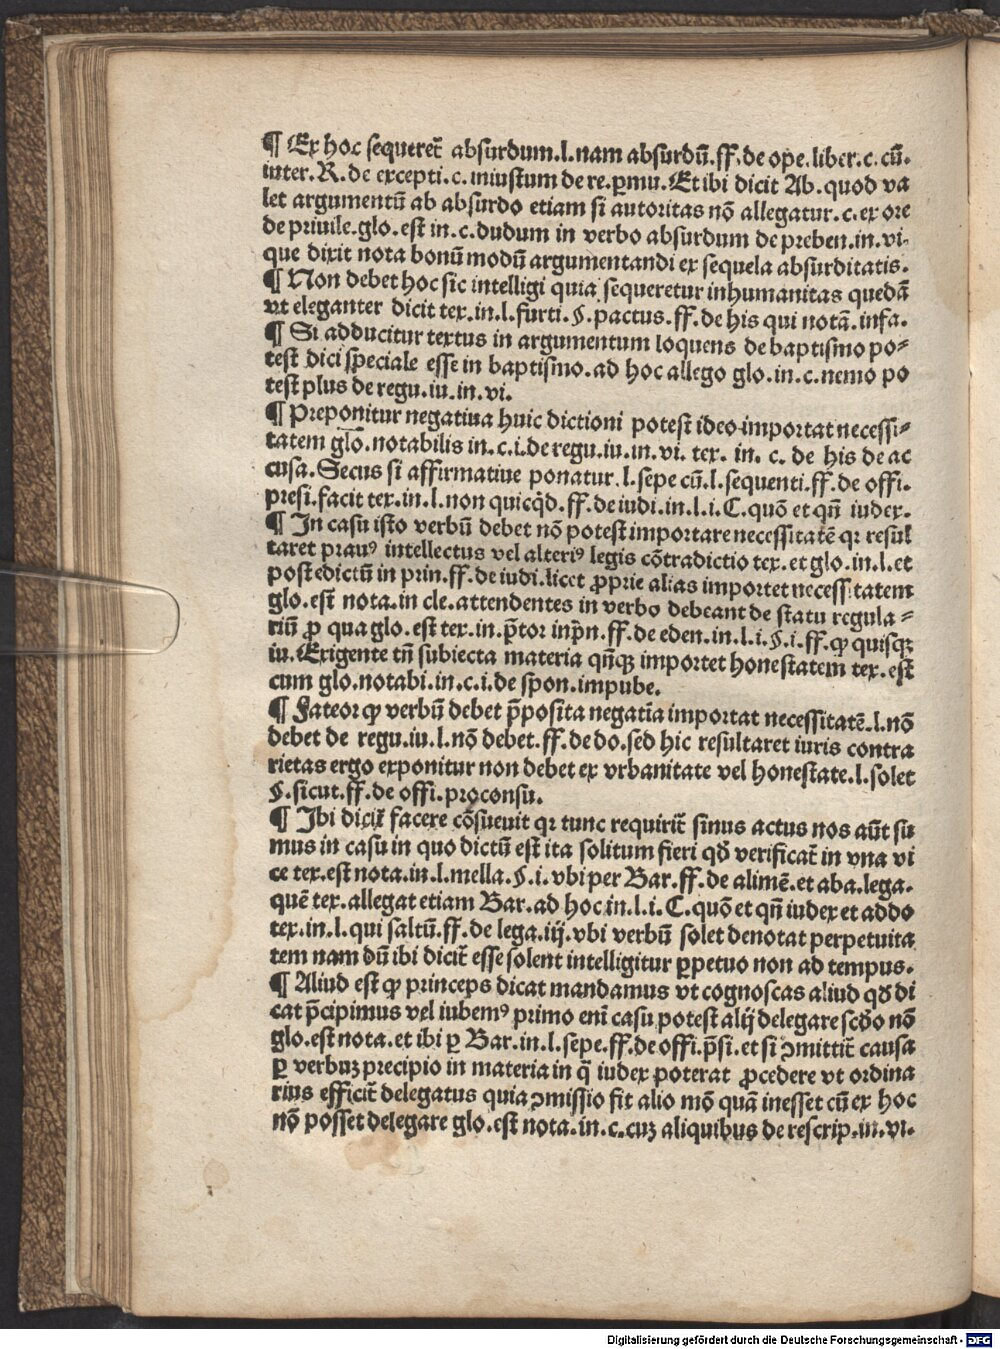 ¶ Ex hoc sequeret̃ absurdum.l.nam absurdū.ff.de ope.liber.c.cū.
inter.R.de excepti.c.iniustum de re.ꝑmu.Et ibi dicit Ab.quod va
let argumentū ab absurdo etiam si autoritas nō allegatur.c.ex ore
de priuile.glo.est in.c.dudum in verbo absurdum de preben.in.vi.
que dixit nota bonū modū argumentandi ex sequela absurditatis.
¶ Non debet hoc sic intelligi quia sequeretur inhumanitas quedā
vt eleganter dicit tex.in.l.furti.§.pactus.ff.de his qui notā.infa.
¶ Si adducitur textus in argumentum loquens de baptismo po⸗
test dici speciale esse in baptismo.ad hoc allego glo.in.c.nemo po
test plus de regu.iu.in.vi.
¶ Preponitur negatiua huic dictioni potest ideo importat necessi⸗
tatem glo.notabilis in.c.i.de regu.iu.in.vi. tex. in. c. de his de ac
cusa.Secus si affirmatiue ponatur.l.sepe cū.l.sequenti.ff.de offi.
presi.facit tex.in.l.non quicq̇d.ff.de iudi.in.l.i.C.quō et qn̄ iudex.
¶ In casu isto verbū debet nō potest importare necessitatē qꝛ resul
taret prauꝰ intellectus vel alteriꝰ legis cōtradictio tex.et glo.in.l.et
post edictū in prin.ff.de iudi.licet ꝓprie alias importet necessitatem
glo.est nota.in cle.attendentes in verbo debeant de statu regula⸗
riū ꝓ qua glo.est tex.in.p̄tor inpn̄.ff.de eden.in.l.i.§.i.ff.ꝙ quisqꝫ
iu.Exigente tn̄ subiecta materia qn̄qꝫ importet honestatem tex.est
cum glo.notabi.in.c.i.de spon.impube.
¶ Fateor ꝙ verbū debet p̄posita negatīa importat necessitatē.l.nō
debet de regu.iu.l.nō debet.ff.de do.sed hic resultaret iuris contra
rietas ergo exponitur non debet ex vrbanitate vel honestate.l.solet
§.sicut.ff.de offi.proconsu.
¶ Ibi dicit̃ facere cōsueuit qꝛ tunc requirit̃ sinus actus nos aūt su
mus in casu in quo dictū est ita solitum fieri qđ verificat̃ in vna vi
ce tex.est nota.in.l.mella.§.i.vbi per Bar.ff.de alimē.et aba.lega.
quē tex.allegat etiam Bar.ad hoc in.l.i.C.quō et qn̄ iudex et addo
tex.in.l.qui saltū.ff.de lega.iij.vbi verbū solet denotat perpetuita
tem nam dū ibi dicit̃ esse solent intelligitur ꝑpetuo non ad tempus.
¶ Aliud est ꝙ princeps dicat mandamus vt cognoscas aliud qđ di
cat p̄cipimus vel iubemꝰ primo eni̅ casu potest alij delegare scđo nō
glo.est nota.et ibi ꝑ Bar.in.l.sepe.ff.de offi.p̄si.et si ↄmittit̃ causa
ꝑ verbuꝫ precipio in materia in q̄ iudex poterat ꝓcedere vt ordina
rius efficit̃ delegatus quia ↄmissio fit alio mō quā inesset cū ex hoc
nō posset delegare glo.est nota.in.c.cuꝫ aliquibus de rescrip.in.vi.
Digitalisierung gefördert durch die Deutsche Forschungsgemeinschaft - DFG